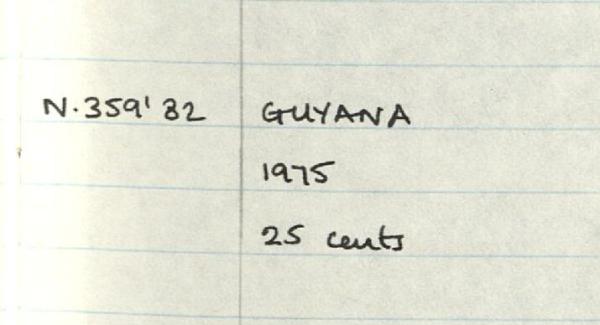 N.359'82 GUYANA
1975
25 cents